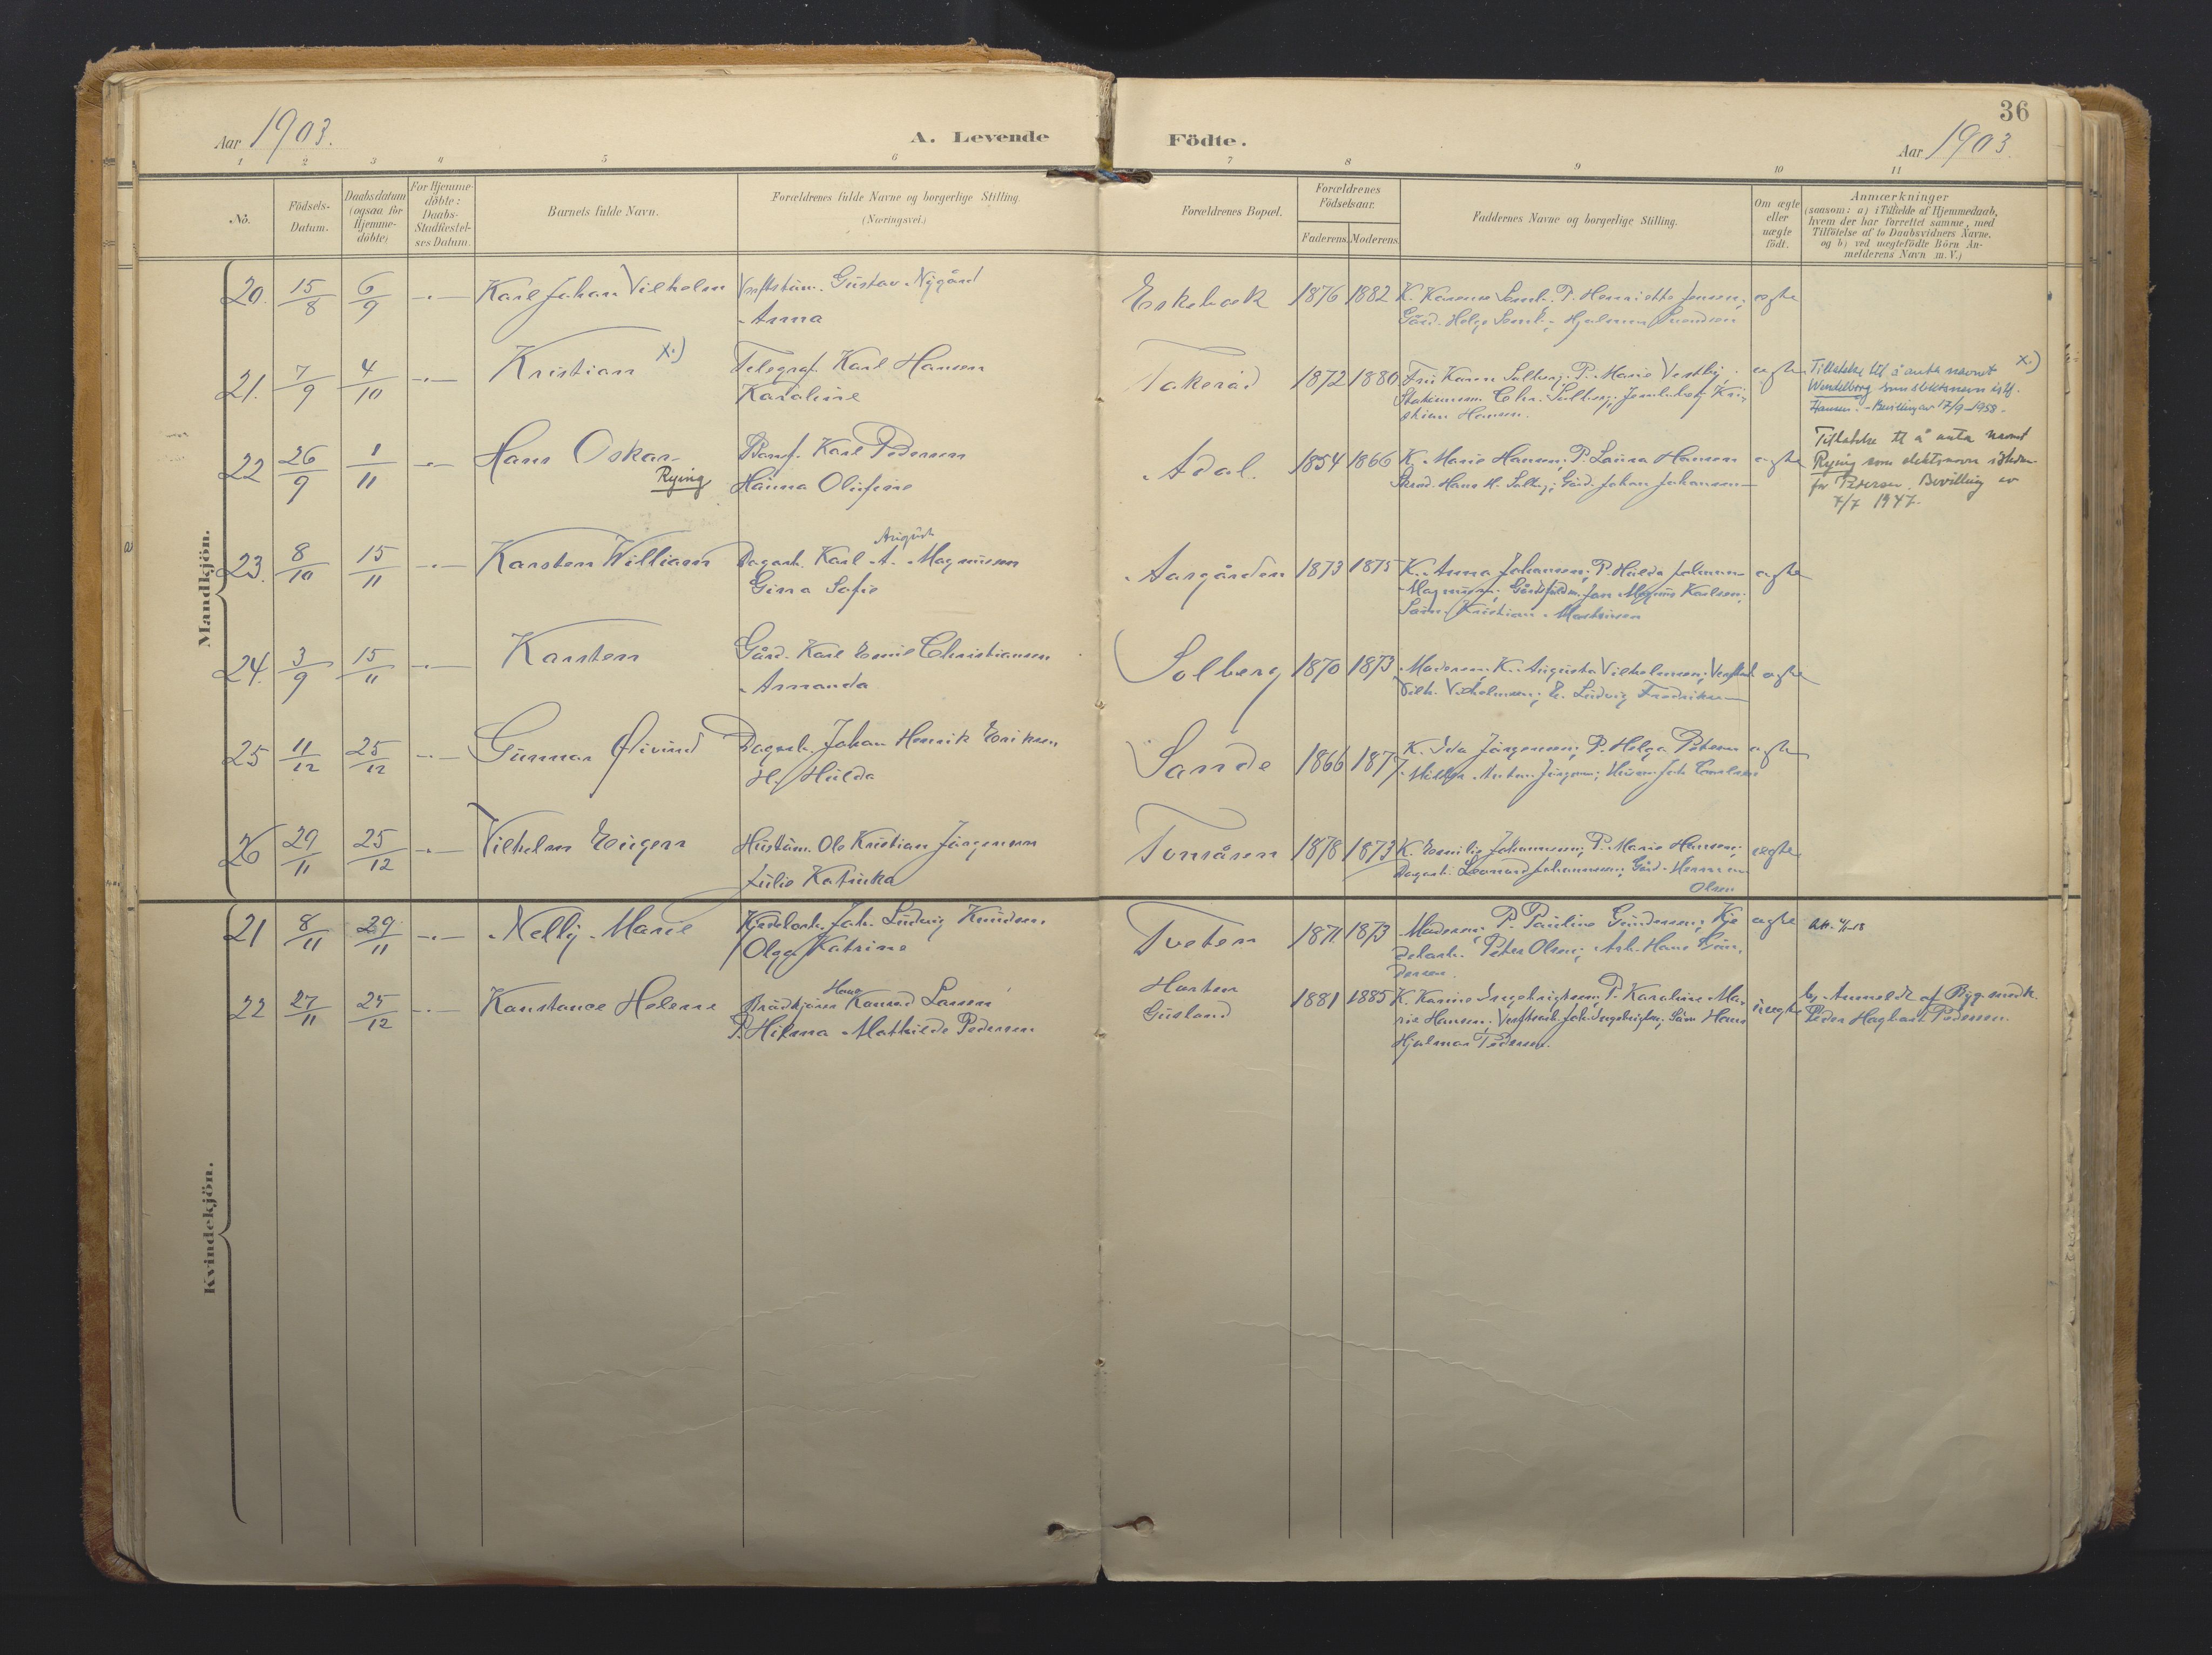 36
Aar 1903.
A. Levende
Födte.
Aar 1903.
1 2 3 4 5 6 7 8 9 10 11
No.
Födsels-
Datum.
Daabsdatum
(ogsaa for
Hjemme-
döbte)
For Hjemme-
döbte:
Daabs-
Stadfæstel-
ses Datum.
Barnets fulde Navn.
Forældrenes fulde Navne og borgerlige Stilling.
(Næringsvei.)
Forældrenes Bopæl.
Forældrenes
Födselsaar.
Faderens. Moderens.
Faddernes Navne og borgerlige Stilling.
Om ægte
eller
uægte
födt.
Anmærkninger
(saasom: a) i Tilfælde af Hjemmedaab,
hvem der har forrettet samme, med
Tilföielse af to Daabsvidners Navne.
og b) ved uægtefödte Börn An-
melderens Navn m. V.)
Mandkjön.
20. 15/8 6/9 Karl Johan Vilhelm
Gustav Nygård
Anna
Eskebæk 1876 1882
K. Karense P. Henriette Jensen;
Gård. Helge Hjalmar
ægte
21. 7/9 4/10 Kristian x.)
Telegraf. Karl Hansen
Karoline
Takeråd 1872 1880
Fru Karen Solberg; P. Marie Vestby;
Chr. Solberg; Kri-
stian Hansen.
ægte
Tillatelse til å anta navnet x.)
Wendelborg som slektsnavn istf.
Hansen. - Bevilling av 17/9-1958.
22 26/9 1/11 Hans Oskar
Rying
Karl Pedersen
Hanna Olufine
Adal. 1854 1866
K. Marie Hansen; P. Laura Hansen
Hans H. Solberg; Gård. Johan Johansen
ægte
Tillatelse til å anta navnet
Rying som slektsnavn isteden-
for Pedersen. Bevilling av
7/7 1947.
23. 8/10 15/11 Karsten William
August
Dagarb. Karl A. Magnussen
Gina Sofie
Aasgården 1873 1875
K. Anna Johansen; P. Hulda Johanne
Magnussen; Gårdsfuldm. Jan Magnus Karlsen;
Kristian Martinsen
ægte
24. 3/9 15/11 Karsten
Gård. Karl Emil Christiansen
Amanda
Solberg 1870 1873
Moderen; K. Augusta Vilhelmsen;
Vilh. Vilhelmsen; E. Ludvig Fredriksen
ægte
25 11/12 25/12 Gunnar Øivind
Dagarb. Johan Henrik Eriksen
Hulda
Sande 1866 1877
K. Ida Jörgensen; P. Helga Petersen
Anton Jörgensen;
ægte
26 29/11 25/12 Vilhelm Eugen
Ole Kristian Jörgensen
Julie Katinka
Tomåsen 1878 1873
K. Emilie Johannesen; P. Marie Hansen;
Dagarb. Leonard Johannesen; Gård. Herman
Olsen
ægte
Kvindekjön.
21 8/11 29/11 Nelly Marie
Kjedelarb. Joh. Ludvig Knudsen
Olga Katrine
Tveten 1871 1873
Moderen; P. Pauline Gundersen; Kje-
delarb. Peter Olsen; Arb. Hans Gun-
dersen.
ægte
22 27/11 25/12 Konstance Helene
Hans
Konrad Larsen
P. Hilma Mathilde Pedersen
Horten
Gusland
1881 1885
K. Karine Ingebrigtsen; P. Karoline Ma-
rie Hansen; Verftsarb. Joh. Ingebrigtsen; Söm. Hans
Hjalmar Pedersen.
uægte
b) Anmeldt af Byg.
Peder Hagbart Pedersen.